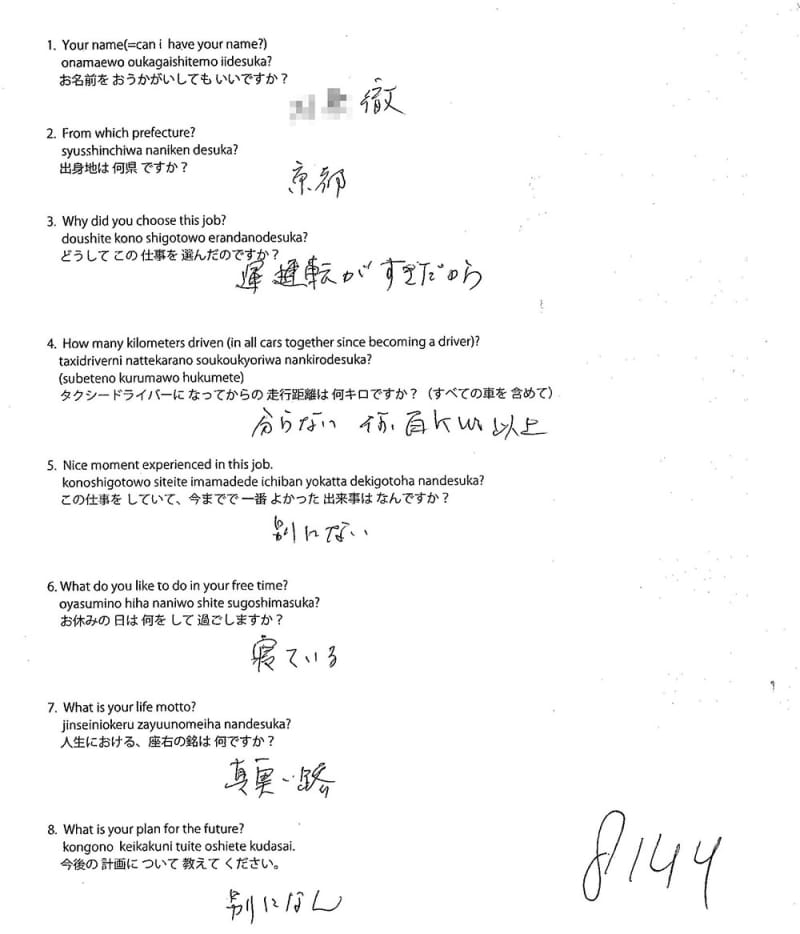 1. Your name(=can i have your name?)
onamaewo oukagaishitemo iidesuka?
お名前を おうかがいしても いいですか？
徹
2. From which prefecture?
syusshinchiwa naniken desuka?
出身地は 何県 ですか？
京都
3. Why did you choose this job?
doushite kono shigotowo erandanodesuka?
どうして この 仕事を 選んだのですか？
運転がすきだから
4. How many kilometers driven (in all cars together since becoming a driver)?
taxidriverni nattekarano soukoukyoriwa nankirodesuka?
(subeteno kurumawo hukumete)
タクシードライバーに なってからの 走行距離は 何キロですか？（すべての車を 含めて）
分らない 何百km以上
5. Nice moment experienced in this job.
konoshigotowo siteite imamadede ichiban yokatta dekigotoha nandesuka?
この仕事を していて、今までで 一番 よかった 出来事は なんですか？
別にない
6. What do you like to do in your free time?
oyasumino hiha naniwo shite sugoshimasuka?
お休みの 日は 何を して 過ごしますか？
寝ている
7. What is your life motto?
jinseiniokeru zayuunomeiha nandesuka?
人生における、座右の銘は 何ですか？
真実一路
8. What is your plan for the future?
kongono keikakuni tuite oshiete kudasai.
今後の 計画に ついて 教えて ください。
別になし
8144